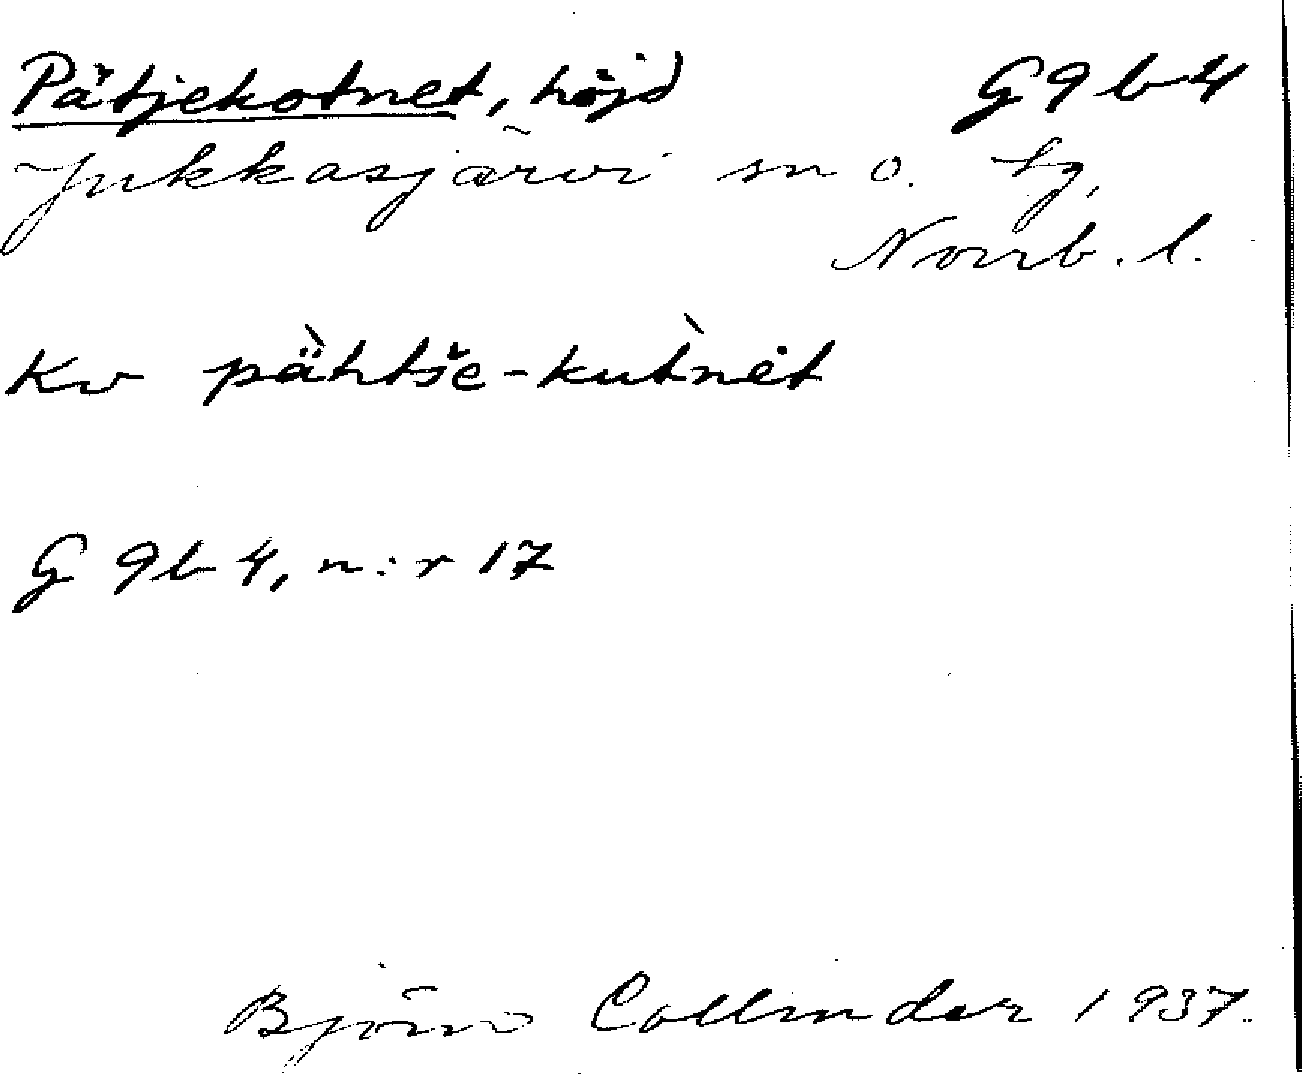 Pätjekotnet, höjd G9b4
Jukkasjärvi sn o. tg,
Norrb. l.
Kv pä̀htše-kut̀nėt
G 9b 4, n:r 17
Björn Collinder 1937.